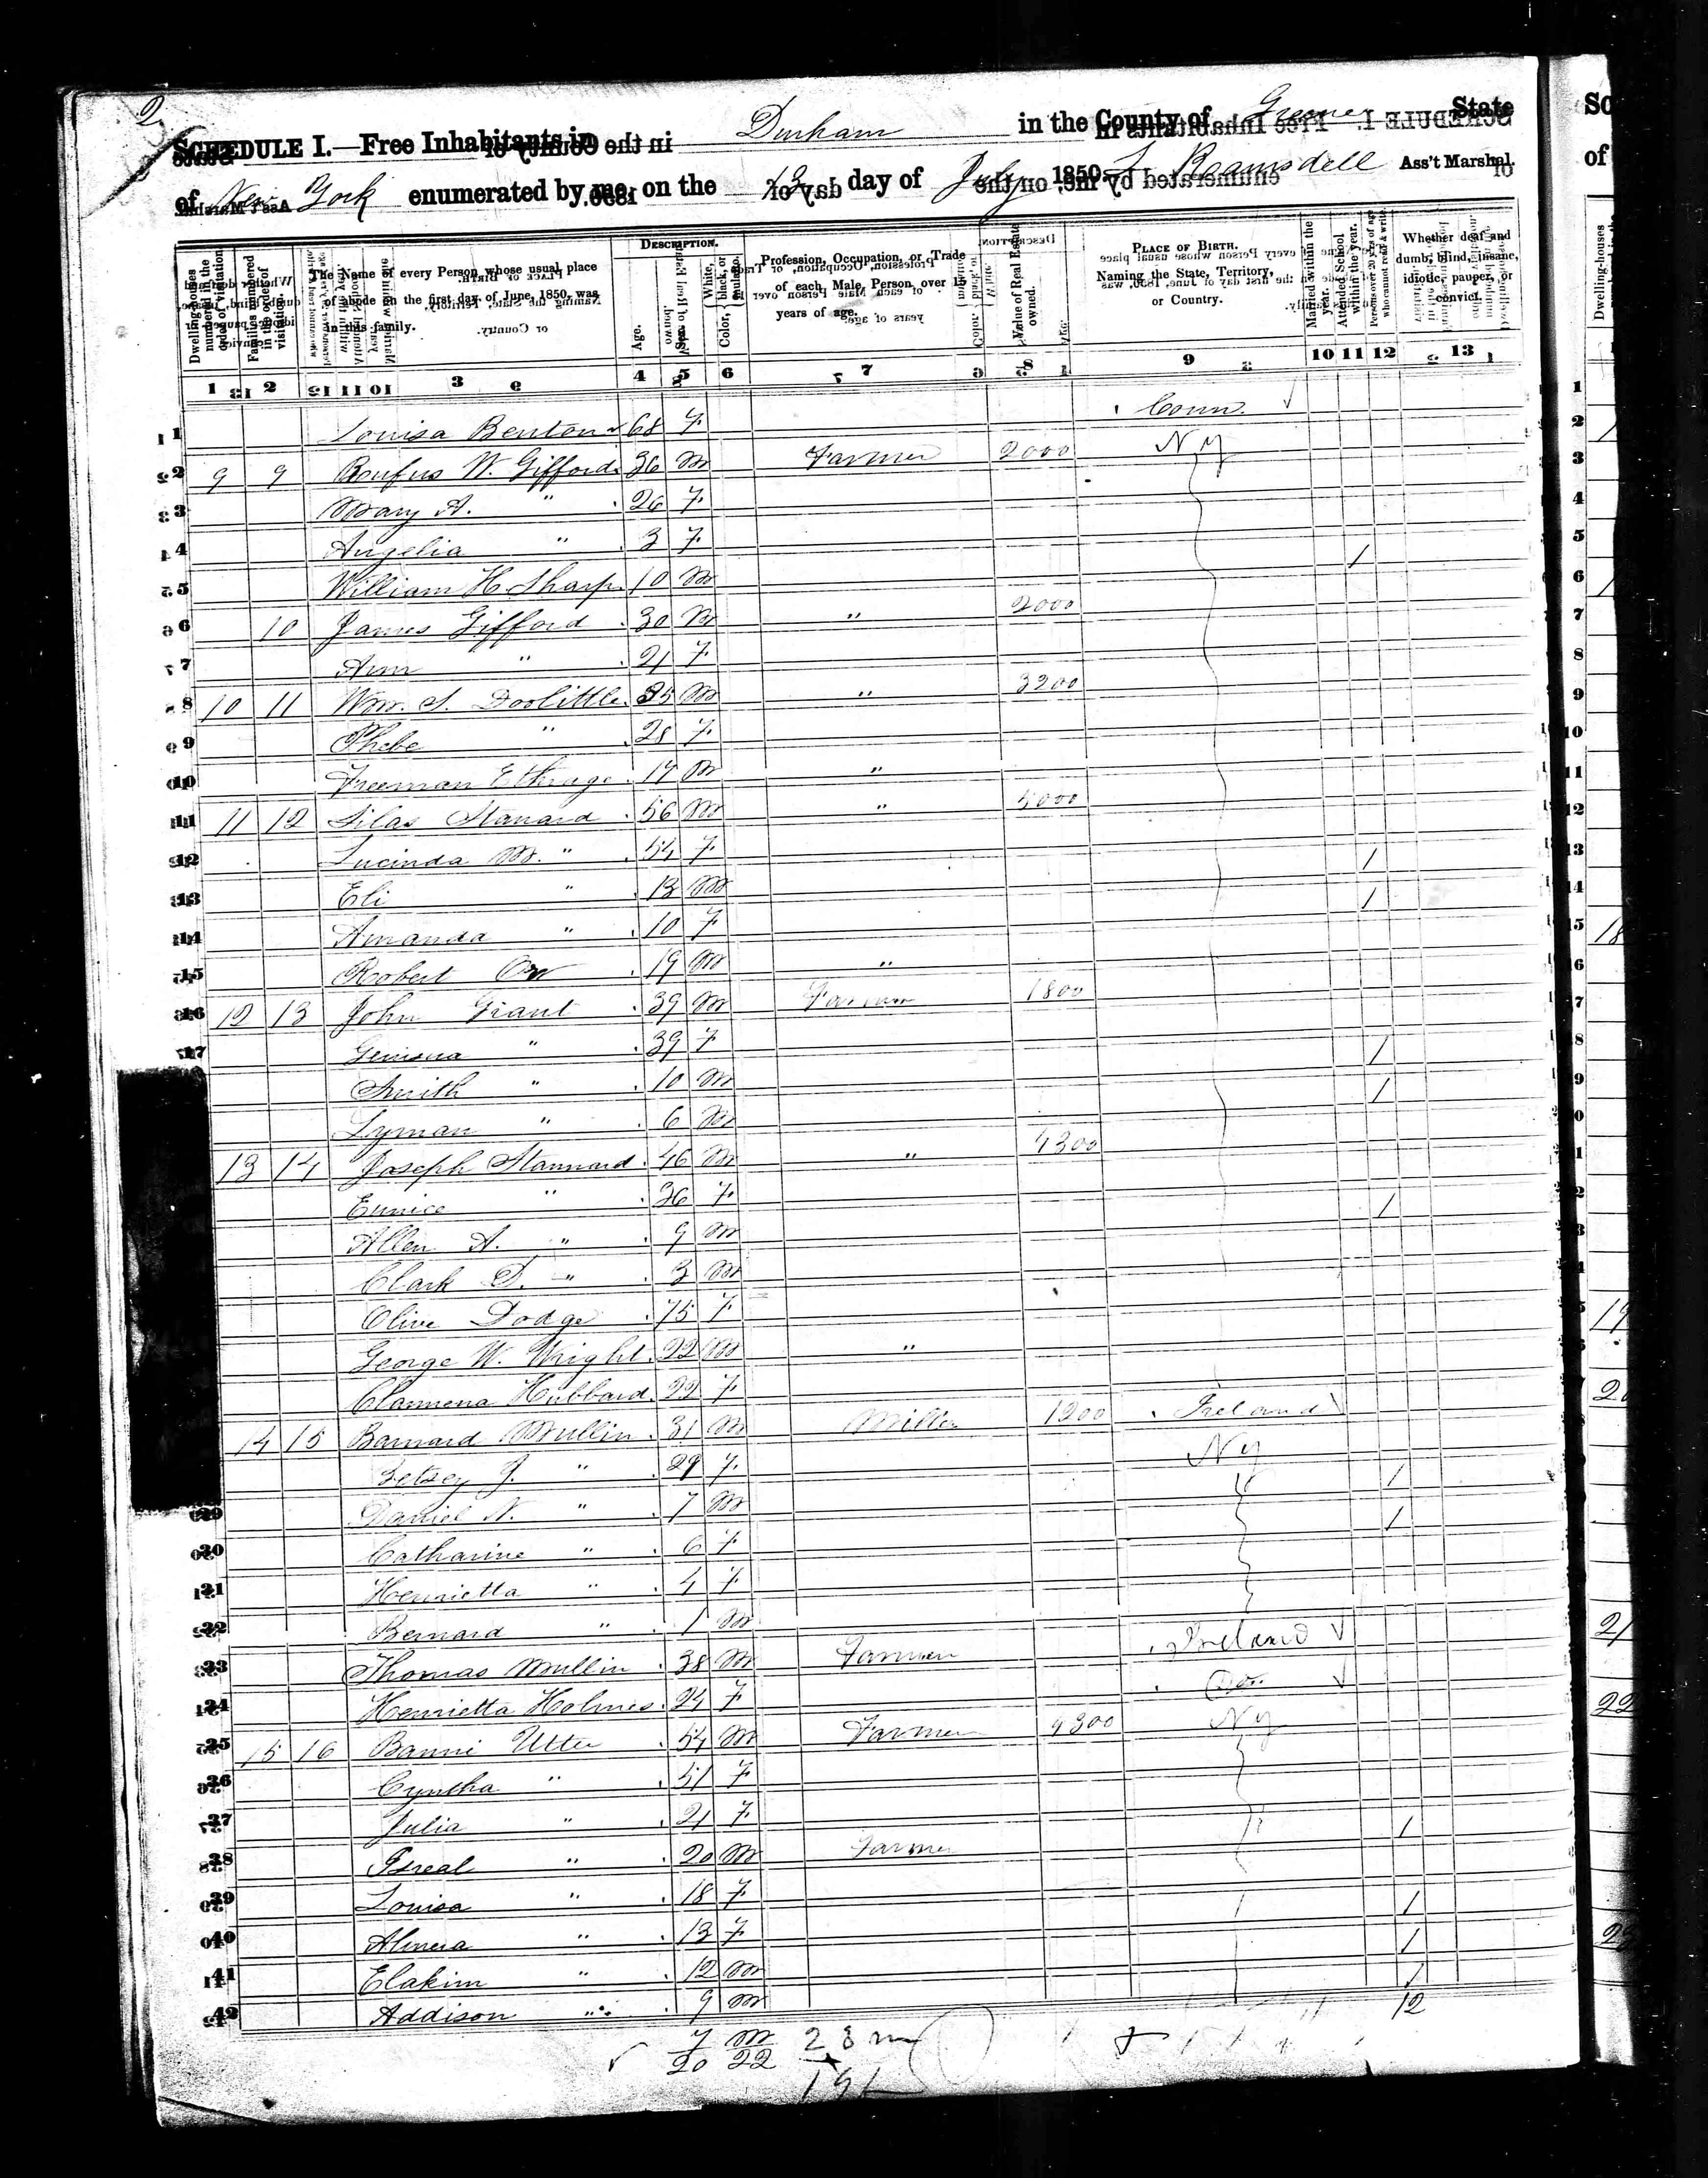 2
SCHEDULE I.—Free Inhabitants in Durham in the County of Greene State
of New York enumerated by me, on the 13 day of July 1850. Ass't Marshal.
Dwelling-houses numbered in the order of visitation. Families numbered in the order of visitation. The Name of every Person whose usual place of abode on the first day of June, 1850, was in this family. DESCRIPTION. Age. Sex. Color, { White, black, or mulatto. Profession, Occupation, or Trade of each Male Person over 15 years of age. Value of Real Estate owned. PLACE OF BIRTH. Naming the State, Territory, or Country. Married within the year. Attended School within the year. Persons over 20 y'rs of age who cannot read & write. Whether deaf and dumb, blind, insane, idiotic, pauper, or convict.
1 2 3 4 5 6 7 8 9 10 11 12 13
1 Louisa Benton 68 F Conn.
2 9 9 Rufus W. Gifford 36 M Farmer 2000 NY
3 Mary A. " 26 F
4 Angelia " 3 F
5 William H. Sharp 10 M /
6 10 James Gifford 30 M " 2000
7 Ann " 21 F
8 10 11 Wm. S. Doolittle 35 M " 3200
9 Phebe " 28 F
10 Freeman 17 M "
11 11 12 Silas Stanard 56 M " 5000
12 Lucinda M. " 54 F
13 Eli " 13 M /
14 Amanda " 10 F /
15 Robert Orr 19 M "
16 12 13 John Grant 39 M Farmer 1800
17 " 39 F
Smith " 10 M /
Lyman " 6 M /
13 14 Joseph Stannard 46 M " 4300
Eunice " 36 F
Allen A. " 9 M /
Clark D. " 3 M
Olive Dodge 75 F
George W. Wright 22 M "
Hubbard 22 F
14 15 Barnard Mullin 31 M Miller 1200 Ireland
Betsey J. " 29 F NY
29 Daniel N. " 7 M /
30 Catharine " 6 F /
31 Henrietta " 4 F
32 Bernard " 1 M
33 Thomas Mullin 38 M Farmer Ireland
34 Henrietta Holmes 24 F Do.
35 15 16 Utter 54 M Farmer 4300 NY
36 Cyntha " 51 F
37 Julia " 21 F
38 Isreal " 20 M Farmer /
39 Louisa " 18 F
40 Almera " 13 F /
41 Elakim " 12 M /
42 Addison " 9 M /
12
7 M 23 m
20 22 19 f